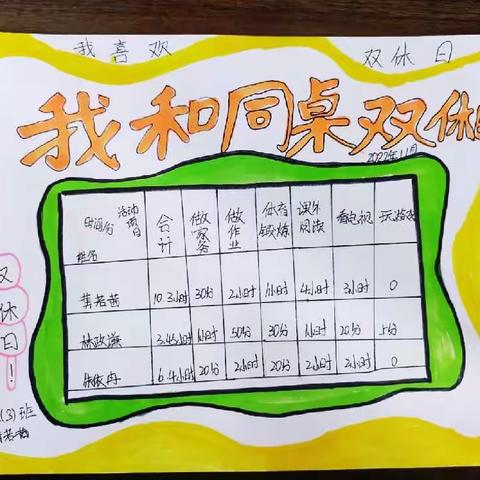 我喜欢 双休日
我和同桌双休
2022年11月
时间/分 活动项目 姓名 合计 做家务 做作业 体育锻炼 课外阅读 看电视 玩游戏
黄若茜 10.3小时 30分 2小时 1小时 4小时 3小时 0
林政谦 3.45小时 1小时 50分 30分 1小时 20分 5分
6.4小时 20分 2小时 20分 2小时 2小时 0
双休日!
(3)班